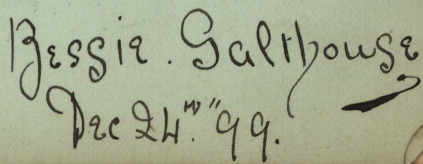 Bessie. Galthouse
Dec 24th "99.